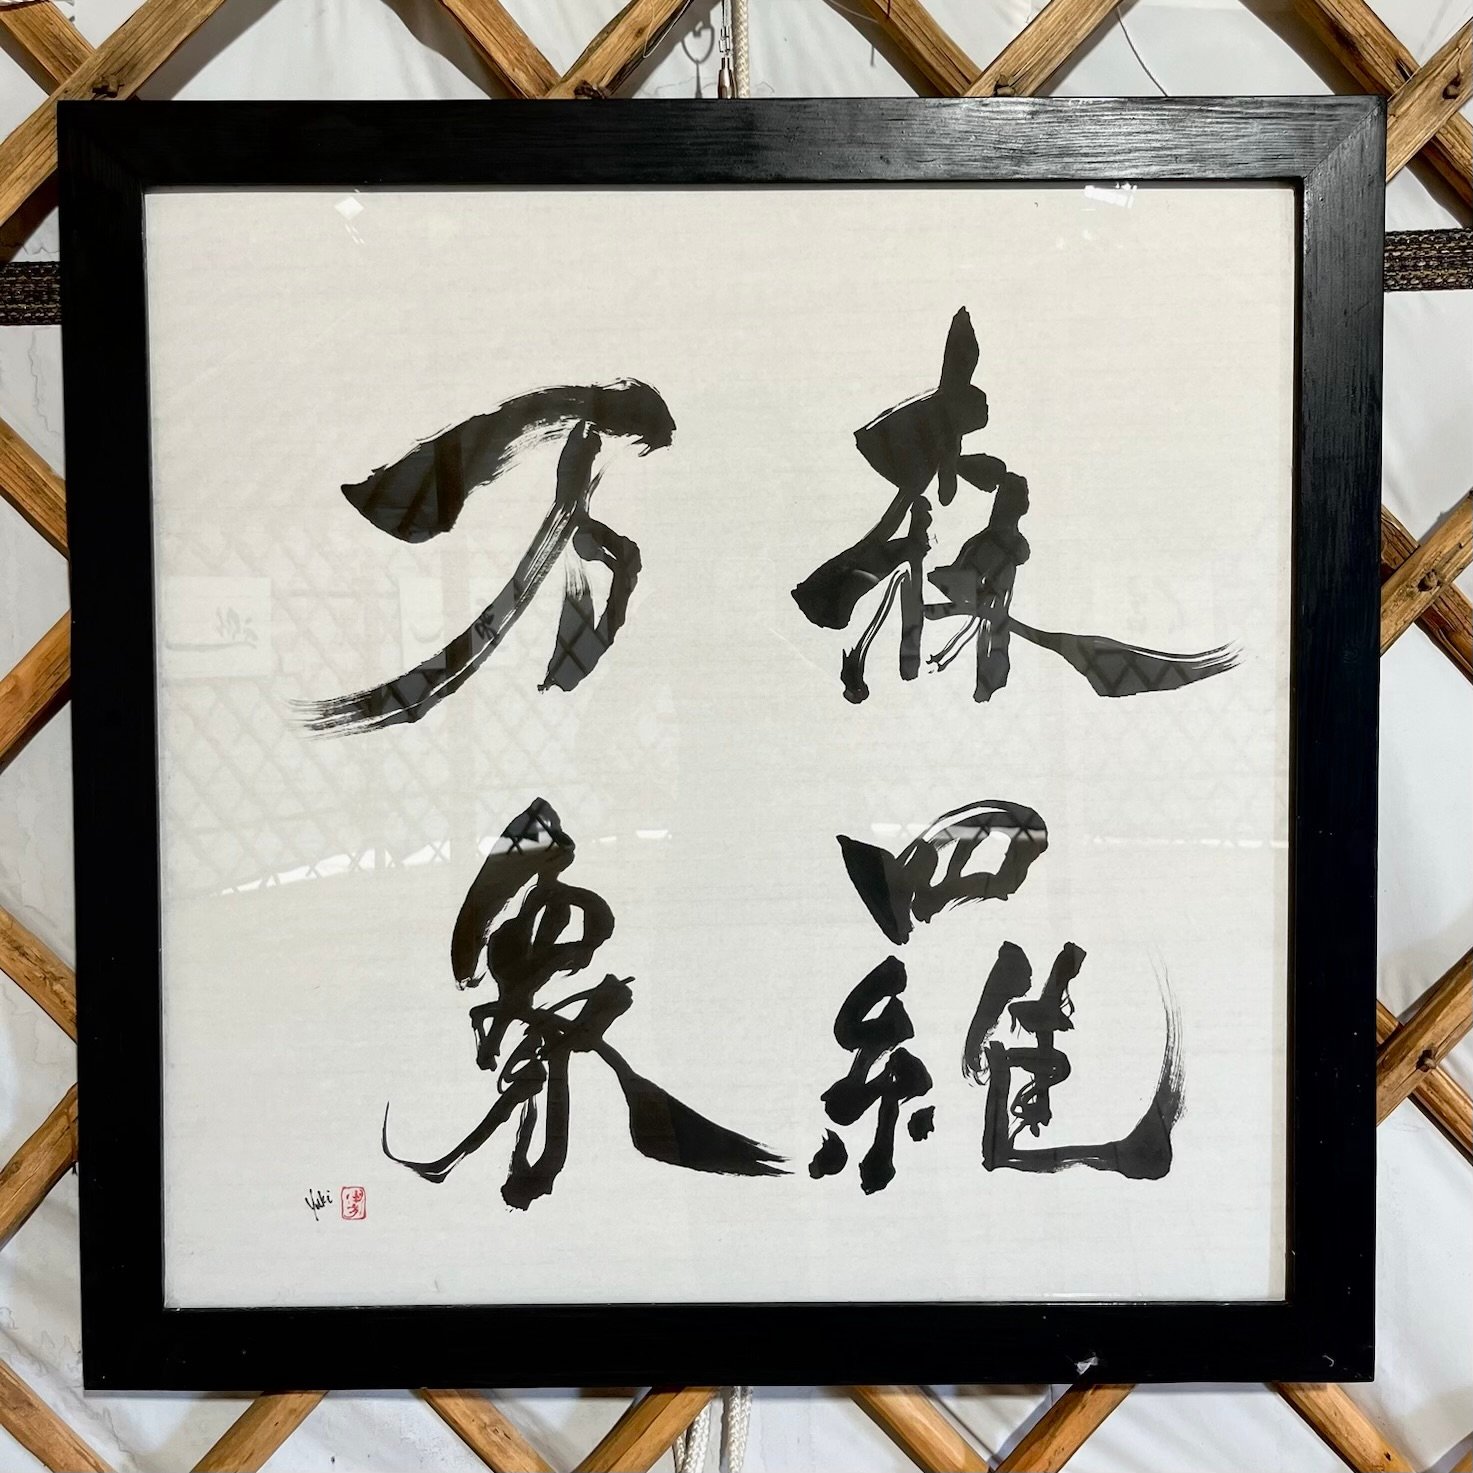 森羅
万象
Yuki